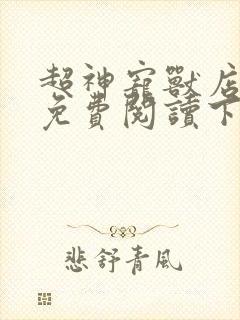 超神寵獸店
免費閱讀下
悲舒青風